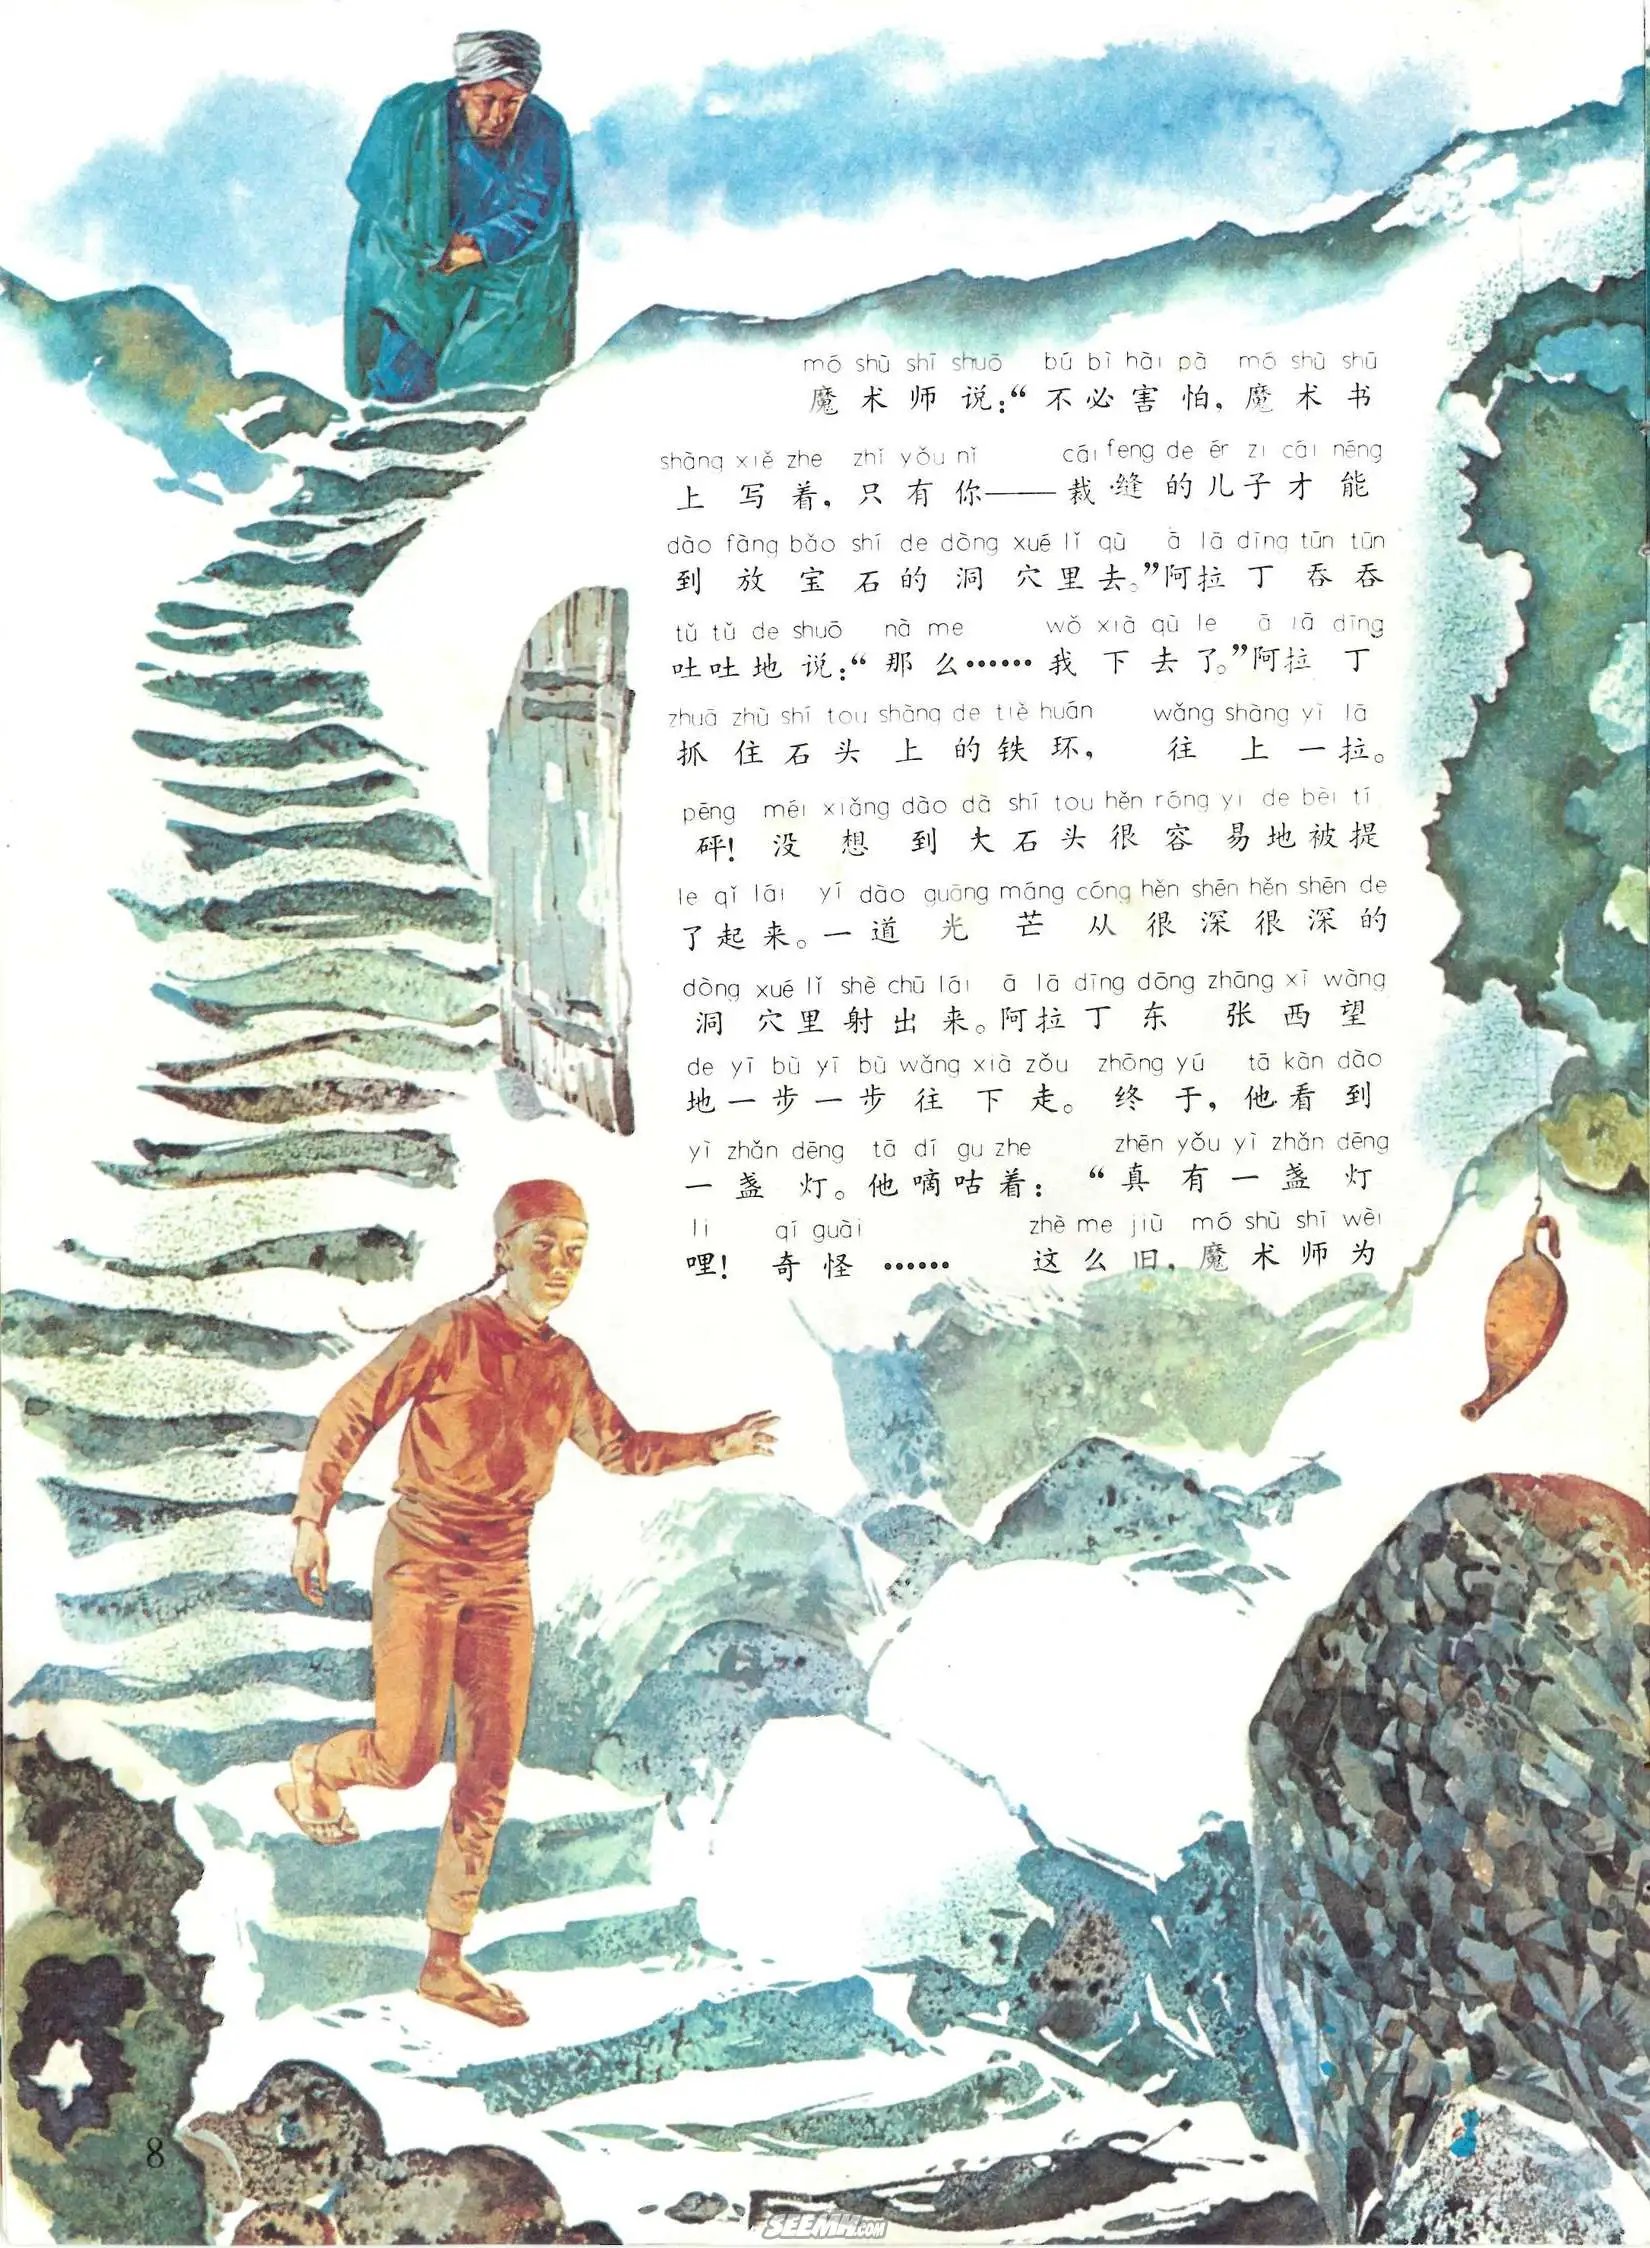 mó shù shī shuō bú bì hài pà mó shù shū
魔术师说：“不必害怕，魔术书
shàng xiě zhe zhǐ yǒu nǐ cái feng de ér zi cái néng
上写着，只有你——裁缝的儿子才能
dào fàng bǎo shí de dòng xué lǐ qù ā lā dīng tūn tūn
到放宝石的洞穴里去。”阿拉丁吞吞
tǔ tǔ de shuō nà me wǒ xià qù le ā lā dīng
吐吐地说：“那么……我下去了。”阿拉丁
zhuā zhù shí tou shàng de tiě huán wǎng shàng yì lā
抓住石头上的铁环，往上一拉。
pēng méi xiǎng dào dà shí tou hěn róng yì de bèi tí
砰！没想到大石头很容易地被提
le qǐ lái yí dào guāng máng cóng hěn shēn hěn shēn de
了起来。一道光芒从很深很深的
dòng xué lǐ shè chū lái ā lā dīng dōng zhāng xī wàng
洞穴里射出来。阿拉丁东张西望
de yī bù yī bù wǎng xià zǒu zhōng yú tā kàn dào
地一步一步往下走。终于，他看到
yì zhǎn dēng tā dí gu zhe zhēn yǒu yì zhǎn dēng
一盏灯。他嘀咕着：“真有一盏灯
li qí guài zhè me jiù mó shù shī wèi
哩！奇怪……这么旧，魔术师为
8
SEEMH.COM